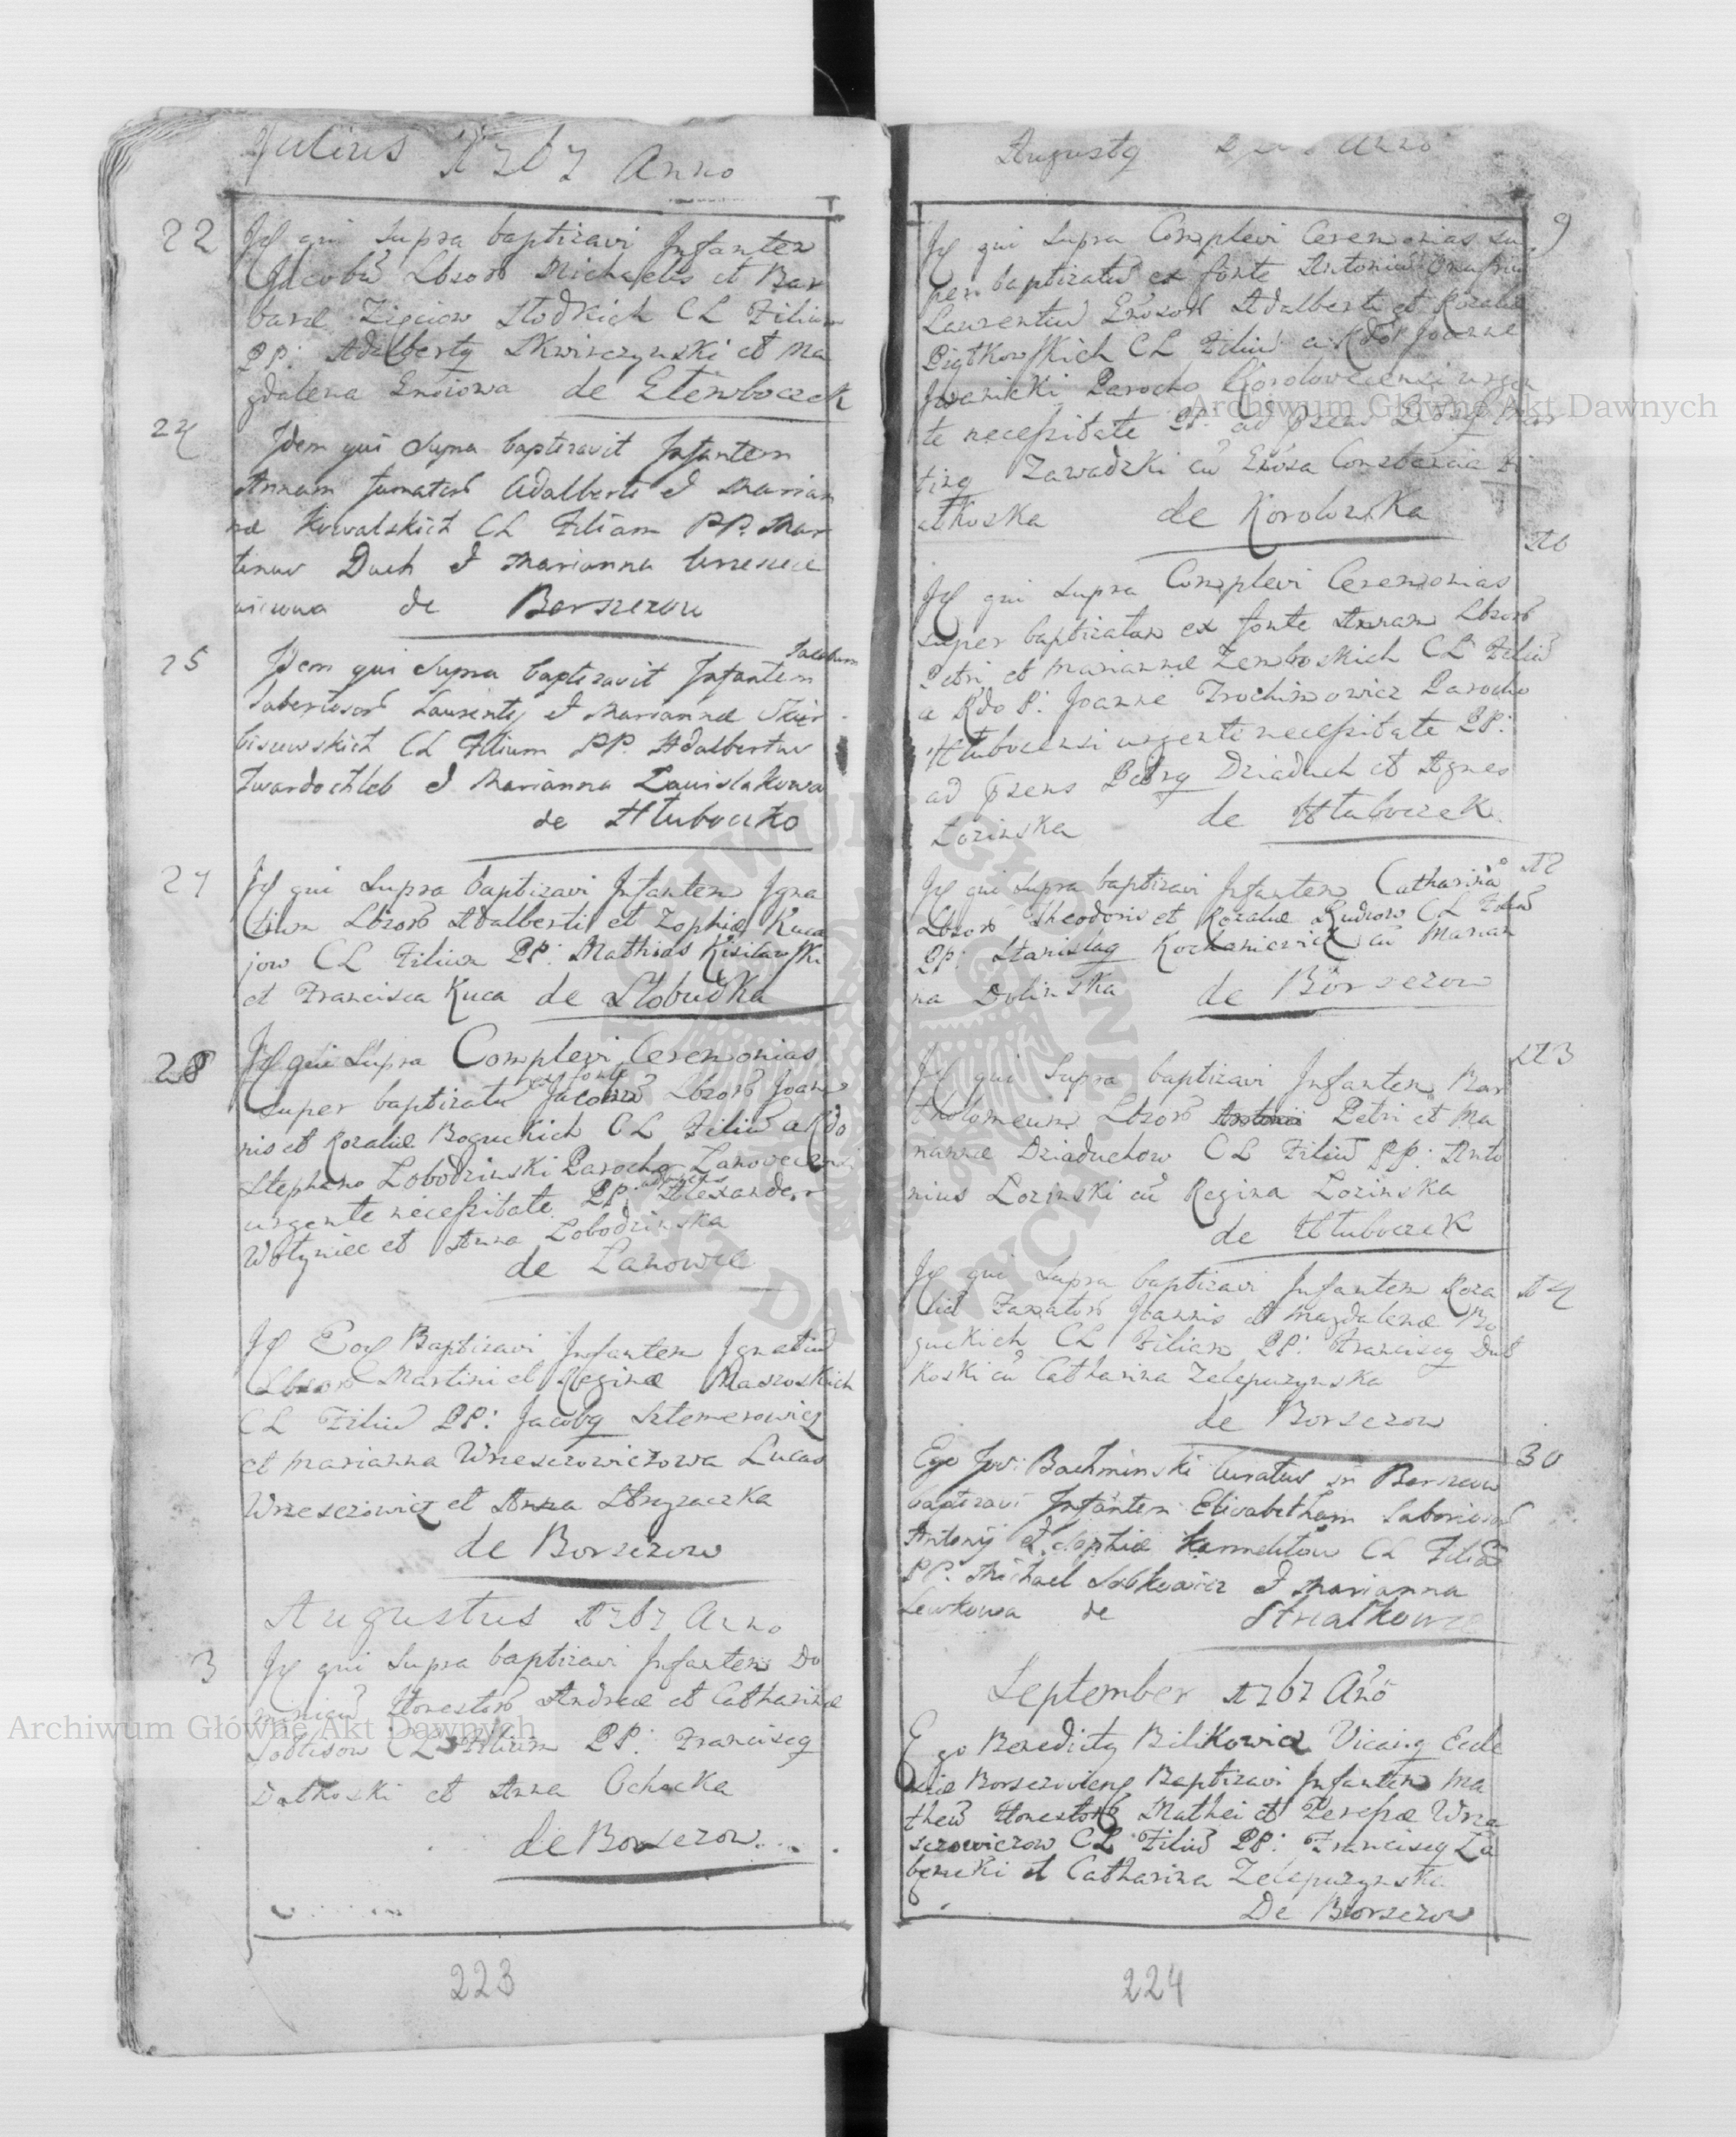 Julius 1767 Anno
22
Id qui Supra baptizavi Infantem
Jacobu Lbsorb Michaelis et Bar
barae Zięciow Słodkich CL Filium
PP: Adalberty Skwirczynski et Ma
gdalena de
24
Idem qui Supra baptizavit Infantem
Annam Famatorb Adalberti et Marian
nae Kowalskich CL Filiam PP. Mar
tinus Duch et Marianna Wrzescie
wiczowa de Borszczow
25
Idem qui Supra baptizavit Infantem Jacobum
Laboriosorb Laurentij et Mariannae
CL Filium PP. Adalbertus
Twardochleb et Marianna Lauislakowa
de Hłuboczko
27
Id qui Supra baptizavi Infantem Igna
tium Lbsorb Adalberti et Zophiae Kuca
jow CL Filium PP: Mathias Kisilewski
et Francisca Kuca de Słobudka
28
Id qui Supra Complevi Ceremonias
super baptizatu ex fonte Jacobu Lbsorb Joan
nis et Rozaliae Boguckich CL Filiu a Rdo
Stephano Lobodzinski Parocho Lanovecensi
urgente necessitate PP: ad prens Alexander
Wołyniec et Anna Lobodzinska
de Lanowce
Id Baptizavi Infantem Ignatiu
Lbsorb Martini et Reginae Mazroskich
CL Filiu PP: Jacobq Sztemerowicz
et Marianna Wrzesczowiczowa Lucas
Wrzesczowicz et Anna Stryzaczka
de Borszczow
Augustus 1767 Anno
3
Id qui Supra baptizavi Infantem Do
minicu Honestorb Andreae et Catharinae
CL Filium PP: Francisq
Dutkoski et Anna Ochocka
de Borszczow
223
Augustq Anno
9
Id qui Supra Complevi Ceremonias su
per baptizatu ex fonte Antoniu Onufriu
Laurentiu Gnosorb Adalberti et Rozaliae
Piątkowskich CL Filiu a Rdo Joanne
Iwanicki Parocho Korolowcensi urgen
te necessitate PP: ad prens Mar
tinq Zawadzki cu Gnosa Constancia Pi
atkoska de Korolowka
10
Id qui Supra Complevi Ceremonias
super baptizatam ex fonte Annam Lbsorb
Petri et Mariannae Zemboskich CL Filiu
a Rdo P: Joanne Trochimowicz Parocho
Hłubocensi urgente necessitate PP:
ad prens Petrq Dziaduch et Agnes
Lozinska de Hłuboczek
12
Id qui Supra baptizavi Infantem Catharina
Lbsorb Theodori et Rozaliae Rudzow CL Filiu
PP: Stanislaq Kochaniewicz cu Marian
na Dolinska de Borszczow
13
Id qui Supra baptizavi Infantem Bar
tholomeum Lbsorb Antonii Petri et Ma
riannae Dziaduchow CL Filiu PP: Anto
nius Lozinski cu Regina Lozinska
de Hłuboczek
14
Id qui Supra baptizavi Infantem Roza
lia Famatorb Joannis et Magdalenae Bo
guckich CL Filiam PP: Francisq Dut
koski cu Catharina Zelepuzynska
de Borszczow
30
Ego Jos: Bachminski Curatus in Borszczow
baptizavi Infantem Elisabetham Laboriosorb
Antonij et Sophiae Karmelitow CL Filia
PP. Michael Sobkowicz et Marianna
Lewkowa de Strzałkowce
September 1767 Ano
Ego Benedictq Bilikowicz Vicariq Eccle
siae Borszczoviens Baptizavi Infantem Ma
theu Honestorb Mathei et Theresiae Wrze
sczowiczow CL Filiu PP: Francisq La
beneki et Catharina Zelepuzynska
De Borszczow
224
Archiwum Główne Akt Dawnych
Archiwum Główne Akt Dawnych
ARCHIWUM GŁÓWNE AKT DAWNYCH